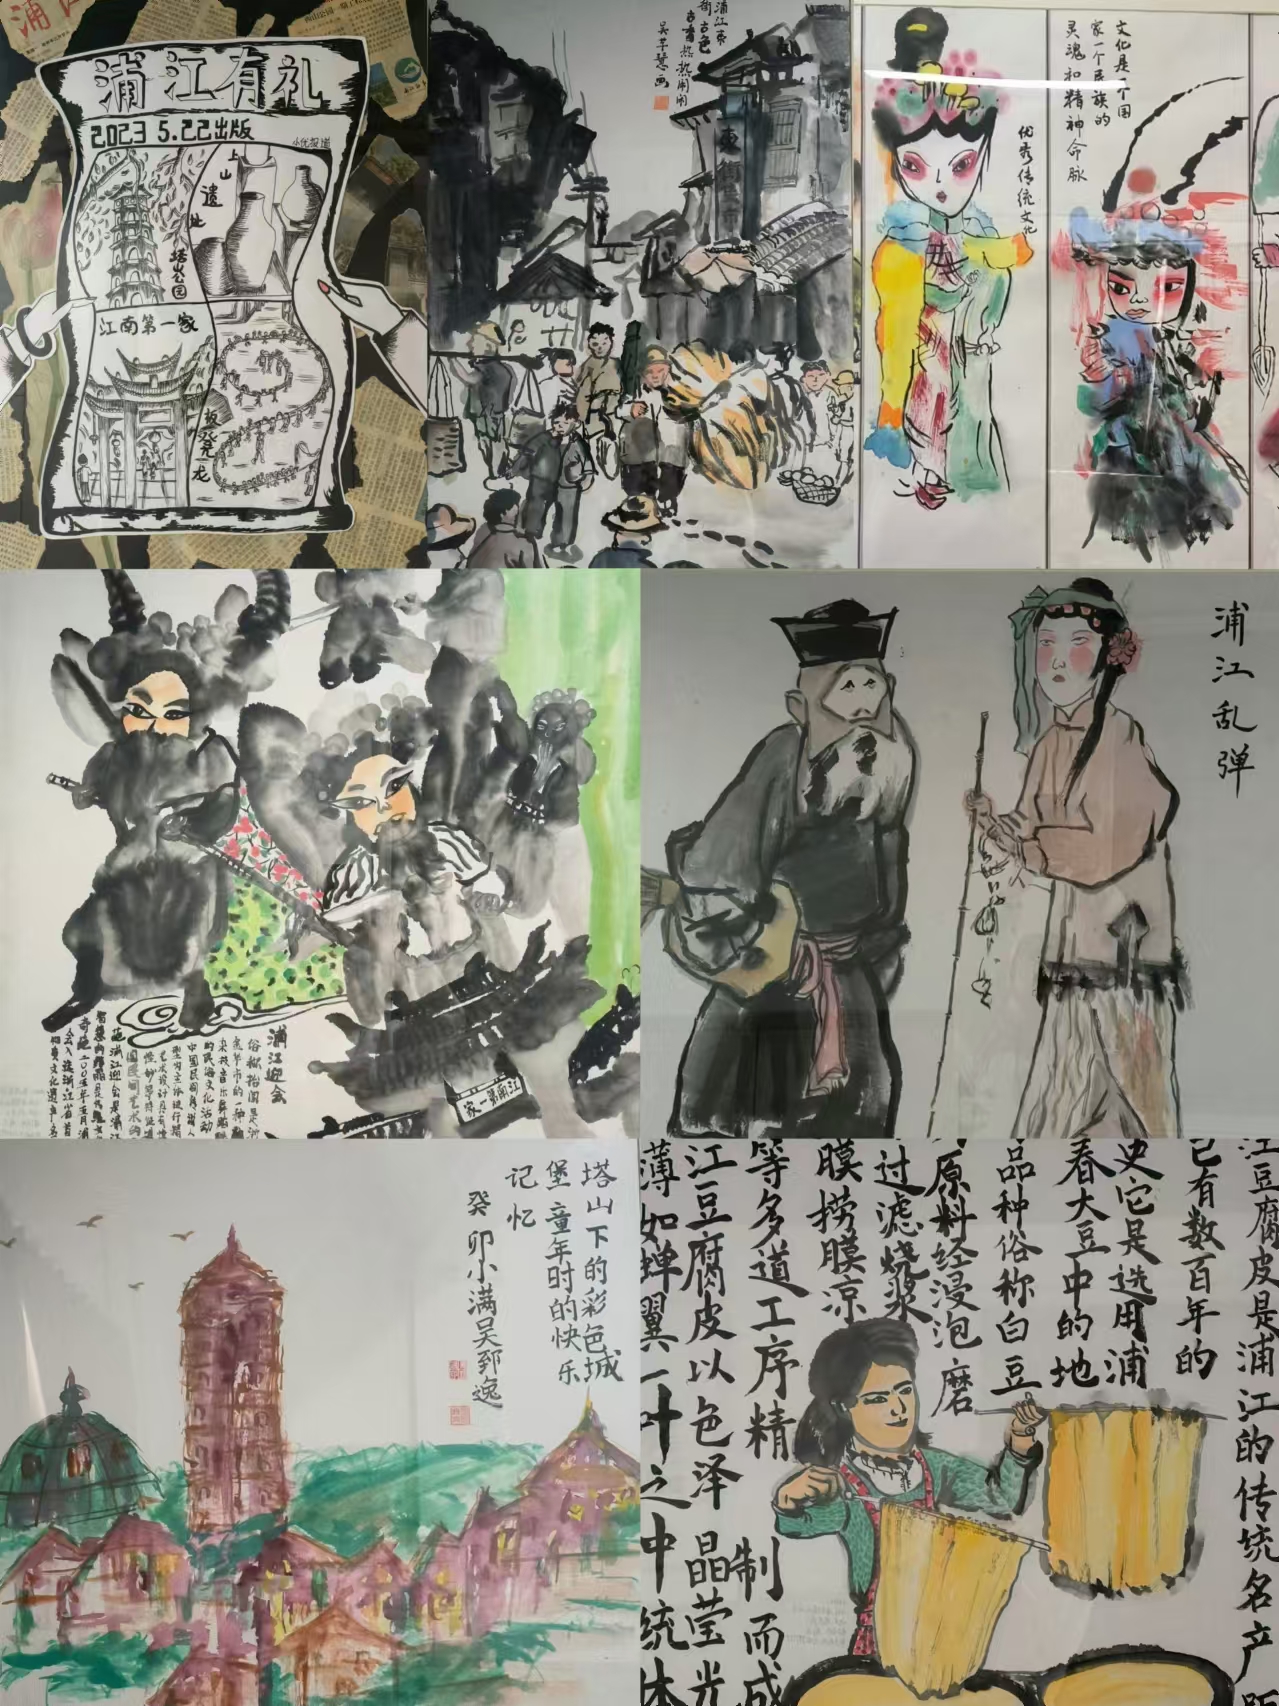 浦江有礼
2023 5.22出版
小优报道
上山遗址
塔山公园
江南第一家
板凳龙
浦江东
街古色
古香热热闹闹
吴芊慧画
東街
优秀传统文化
文化是一个国
家一个民族的
灵魂和精神命脉
浦江迎会
江南第一家
浦江乱弹
塔山下的彩色城
堡童年时的快乐
记忆
癸卯小满吴郅逸
江豆腐皮是浦江的传统名产
已有数百年的
史它是选用浦
春大豆中的地
品种俗称白豆
原料经浸泡磨
过滤烧浆
膜捞膜凉
等多道工序精制而成
江豆腐皮以色泽晶莹光
薄如蝉翼一叶之中统体